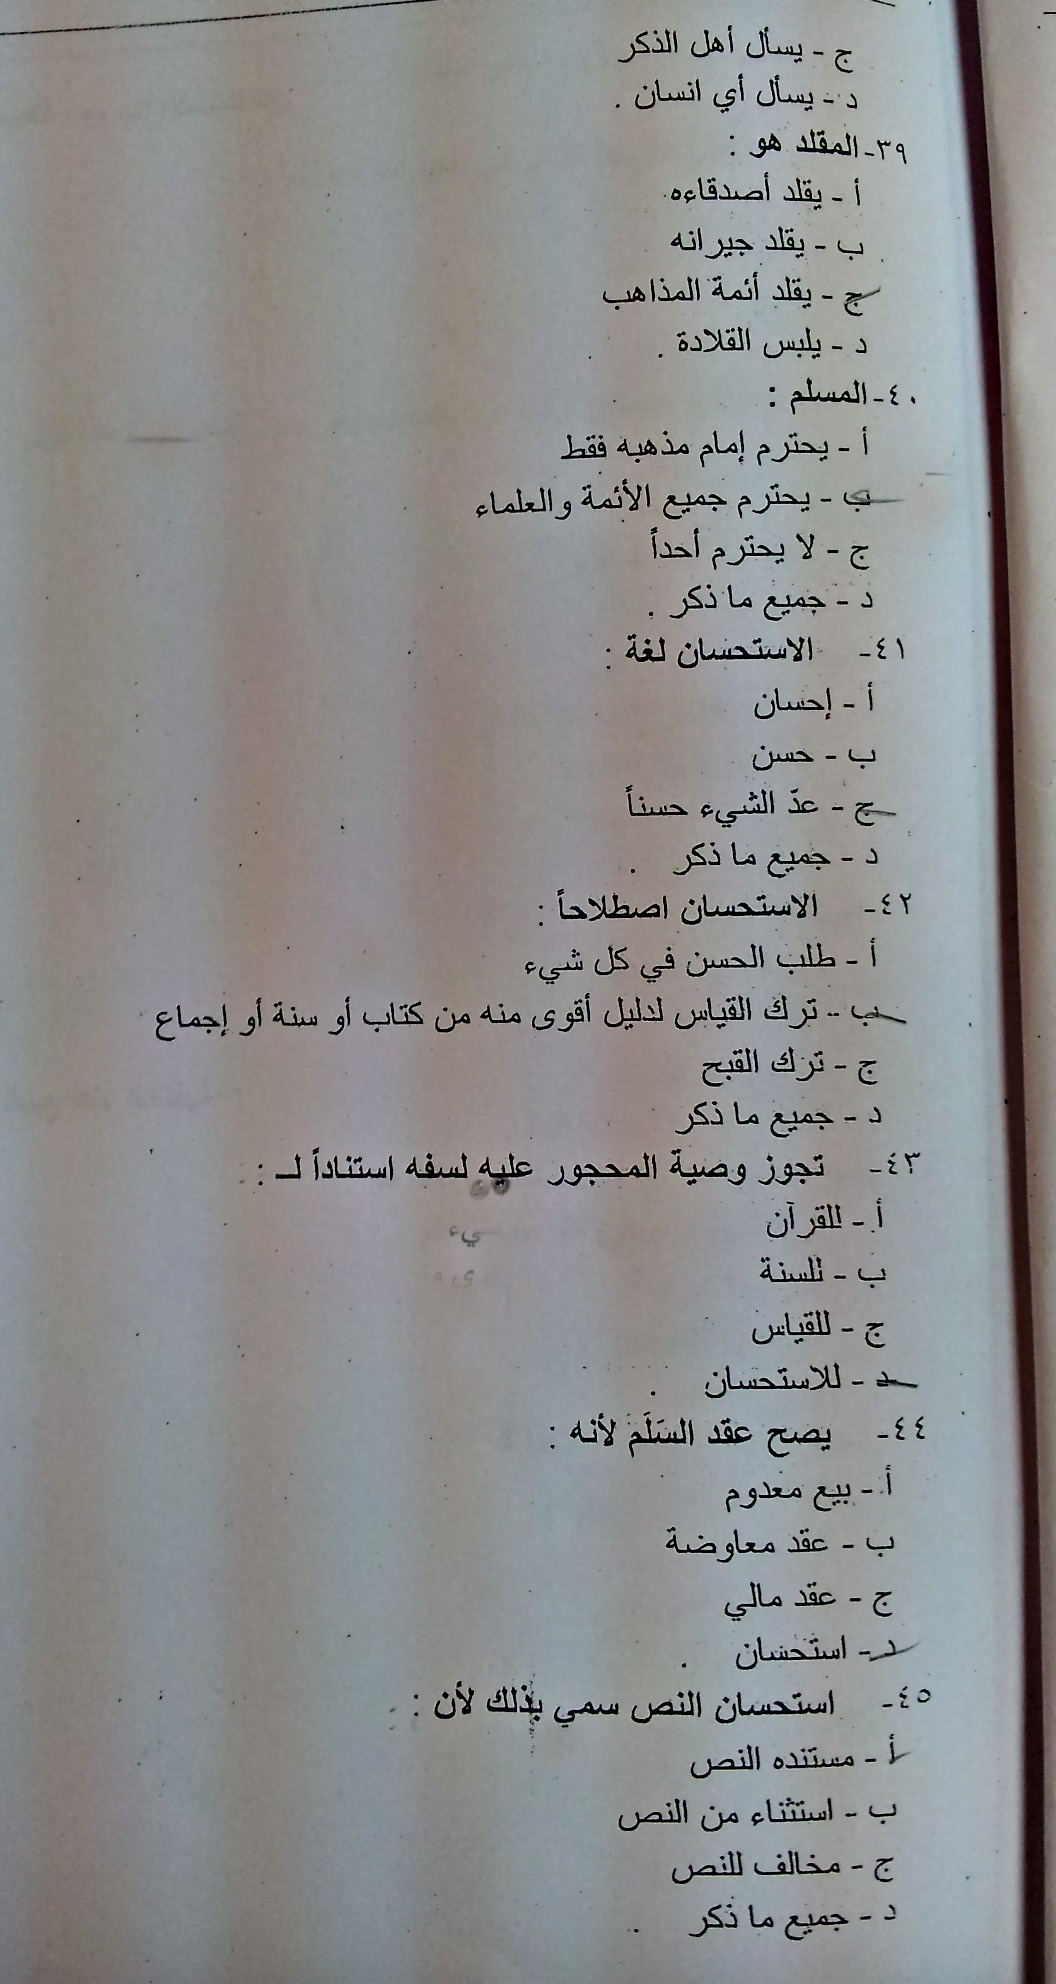 ج - يسأل أهل الذكر
د - يسأل أي انسان .
٣٩- المقلد هو :
أ - يقلد أصدقاءه
ب - يقلد جيرانه
ج - يقلد أئمة المذاهب
د - يلبس القلادة .
٤٠- المسلم :
أ - يحترم إمام مذهبه فقط
ب - يحترم جميع الأئمة والعلماء
ج - لا يحترم أحداً
د - جميع ما ذكر .
٤١- الاستحسان لغة :
أ - إحسان
ب - حسن
ج - عدّ الشيء حسناً
د - جميع ما ذكر .
٤٢- الاستحسان اصطلاحاً :
أ - طلب الحسن في كل شيء
ب - ترك القياس لدليل أقوى منه من كتاب أو سنة أو إجماع
ج - ترك القبح
د - جميع ما ذكر
٤٣- تجوز وصية المحجور عليه لسفه استناداً لـ :
أ - للقرآن
ب - للسنة
ج - للقياس
د - للاستحسان .
٤٤- يصح عقد السَلَم لأنه :
أ - بيع معدوم
ب - عقد معاوضة
ج - عقد مالي
د - استحسان .
٤٥- استحسان النص سمي بذلك لأن :
أ - مستنده النص
ب - استثناء من النص
ج - مخالف للنص
د - جميع ما ذكر .